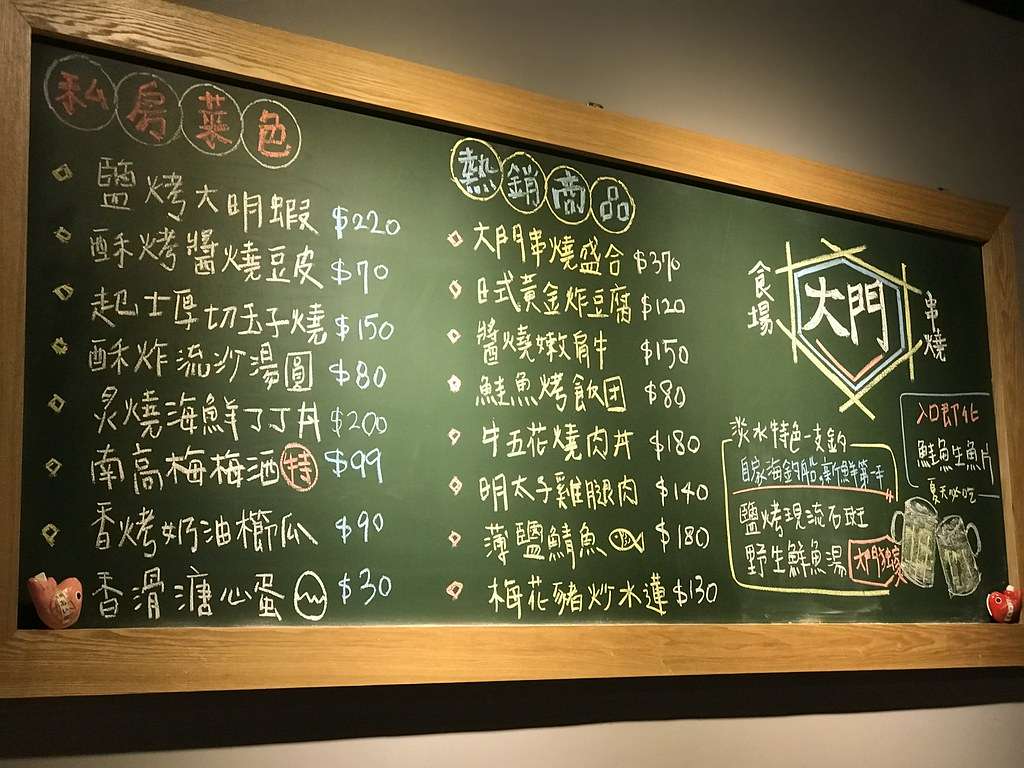 私房菜色
鹽烤大明蝦 $220
酥烤醬燒豆皮 $70
起士厚切玉子燒 $150
酥炸流沙湯圓 $80
炙燒海鮮丁丁丼 $200
南高梅梅酒 特 $99
香烤奶油櫛瓜 $90
香滑溏心蛋 $30
熱銷商品
大門串燒盛合 $370
日式黃金炸豆腐 $120
醬燒嫩肩牛 $150
鮭魚烤飯团 $80
牛五花燒肉丼 $180
明太子雞腿肉 $140
薄鹽鯖魚 $180
梅花豬炒水蓮 $130
食場
大門
串燒
淡水特色一支釣
自家海釣船新鮮第一手
鹽烤現流石斑
野生鮮魚湯
大門獨家
入口即化
鮭魚生魚片
夏天必吃